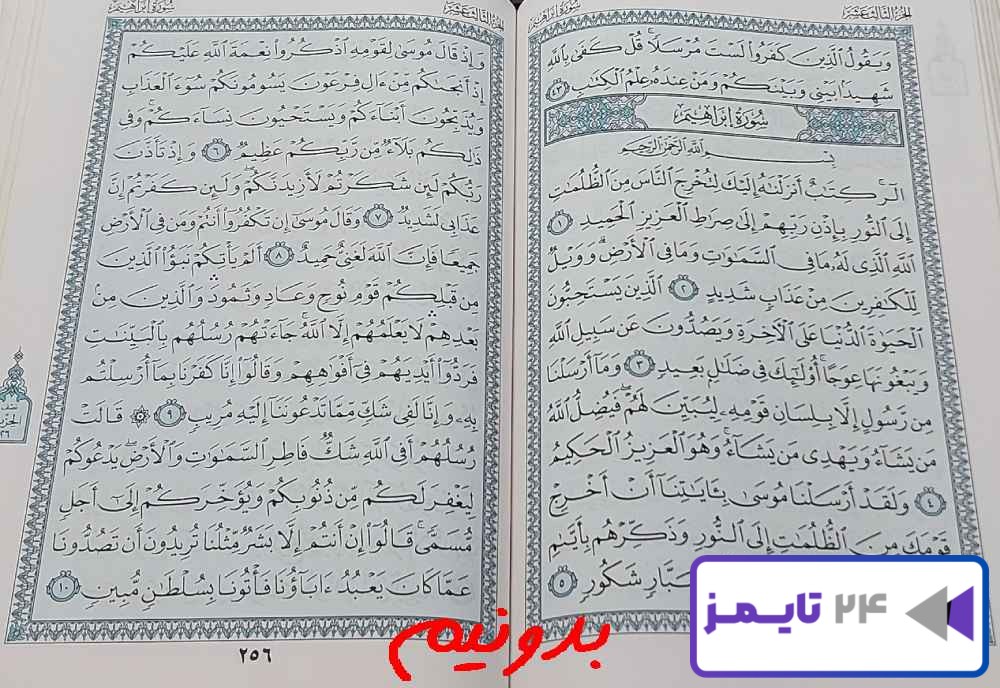 سورة إبراهيم
الجزء الثالث عشر
وَيَقُولُ ٱلَّذِينَ كَفَرُواْ لَسْتَ مُرْسَلًاۚ قُلْ كَفَىٰ بِٱللَّهِ
شَهِيدًۢا بَيْنِي وَبَيْنَكُمْ وَمَنْ عِندَهُۥ عِلْمُ ٱلْكِتَٰبِ ٤٣
سُورَةُ إِبْرَاهِيم
بِسْمِ ٱللَّهِ ٱلرَّحْمَٰنِ ٱلرَّحِيمِ
الٓرۚ كِتَٰبٌ أَنزَلْنَٰهُ إِلَيْكَ لِتُخْرِجَ ٱلنَّاسَ مِنَ ٱلظُّلُمَٰتِ
إِلَى ٱلنُّورِ بِإِذْنِ رَبِّهِمْ إِلَىٰ صِرَٰطِ ٱلْعَزِيزِ ٱلْحَمِيدِ ١
ٱللَّهِ ٱلَّذِي لَهُۥ مَا فِي ٱلسَّمَٰوَٰتِ وَمَا فِي ٱلْأَرْضِۗ وَوَيْلٌ
لِّلْكَٰفِرِينَ مِنْ عَذَابٍ شَدِيدٍ ٢ ٱلَّذِينَ يَسْتَحِبُّونَ
ٱلْحَيَوٰةَ ٱلدُّنْيَا عَلَى ٱلْأٓخِرَةِ وَيَصُدُّونَ عَن سَبِيلِ ٱللَّهِ
وَيَبْغُونَهَا عِوَجًاۚ أُوْلَٰٓئِكَ فِي ضَلَٰلٍۭ بَعِيدٍ ٣ وَمَآ أَرْسَلْنَا
مِن رَّسُولٍ إِلَّا بِلِسَانِ قَوْمِهِۦ لِيُبَيِّنَ لَهُمْۖ فَيُضِلُّ ٱللَّهُ
مَن يَشَآءُ وَيَهْدِي مَن يَشَآءُۚ وَهُوَ ٱلْعَزِيزُ ٱلْحَكِيمُ
٤ وَلَقَدْ أَرْسَلْنَا مُوسَىٰ بِـَٔايَٰتِنَآ أَنْ أَخْرِجْ
قَوْمَكَ مِنَ ٱلظُّلُمَٰتِ إِلَى ٱلنُّورِ وَذَكِّرْهُم بِأَيَّىٰمِ
صَبَّارٍ شَكُورٍ ٥
سورة إبراهيم
الجزء الثالث عشر
وَإِذْ قَالَ مُوسَىٰ لِقَوْمِهِ ٱذْكُرُواْ نِعْمَةَ ٱللَّهِ عَلَيْكُمْ
إِذْ أَنجَىٰكُم مِّنْ ءَالِ فِرْعَوْنَ يَسُومُونَكُمْ سُوٓءَ ٱلْعَذَابِ
وَيُذَبِّحُونَ أَبْنَآءَكُمْ وَيَسْتَحْيُونَ نِسَآءَكُمْۚ وَفِي
ذَٰلِكُم بَلَآءٌ مِّن رَّبِّكُمْ عَظِيمٌ ٦ وَإِذْ تَأَذَّنَ
رَبُّكُمْ لَئِن شَكَرْتُمْ لَأَزِيدَنَّكُمْۖ وَلَئِن كَفَرْتُمْ إِنَّ
عَذَابِي لَشَدِيدٌ ٧ وَقَالَ مُوسَىٰٓ إِن تَكْفُرُوٓاْ أَنتُمْ وَمَن فِي ٱلْأَرْضِ
جَمِيعًا فَإِنَّ ٱللَّهَ لَغَنِيٌّ حَمِيدٌ ٨ أَلَمْ يَأْتِكُمْ نَبَؤُاْ ٱلَّذِينَ
مِن قَبْلِكُمْ قَوْمِ نُوحٍ وَعَادٍ وَثَمُودَۛ وَٱلَّذِينَ مِنۢ
بَعْدِهِمْۛ لَا يَعْلَمُهُمْ إِلَّا ٱللَّهُۚ جَآءَتْهُمْ رُسُلُهُم بِٱلْبَيِّنَٰتِ
فَرَدُّوٓاْ أَيْدِيَهُمْ فِيٓ أَفْوَٰهِهِمْ وَقَالُوٓاْ إِنَّا كَفَرْنَا بِمَآ أُرْسِلْتُم
بِهِۦ وَإِنَّا لَفِي شَكٍّ مِّمَّا تَدْعُونَنَآ إِلَيْهِ مُرِيبٍ ٩ ۞ قَالَتْ
رُسُلُهُمْ أَفِي ٱللَّهِ شَكٌّ فَاطِرِ ٱلسَّمَٰوَٰتِ وَٱلْأَرْضِۖ يَدْعُوكُمْ
لِيَغْفِرَ لَكُم مِّن ذُنُوبِكُمْ وَيُؤَخِّرَكُمْ إِلَىٰٓ أَجَلٍ
مُّسَمًّىۚ قَالُوٓاْ إِنْ أَنتُمْ إِلَّا بَشَرٌ مِّثْلُنَا تُرِيدُونَ أَن تَصُدُّونَا
عَمَّا كَانَ يَعْبُدُ ءَابَآؤُنَا فَأْتُونَا بِسُلْطَٰنٍ مُّبِينٍ ١٠
٢٥٦
بدونیم
۲۴ تایمز